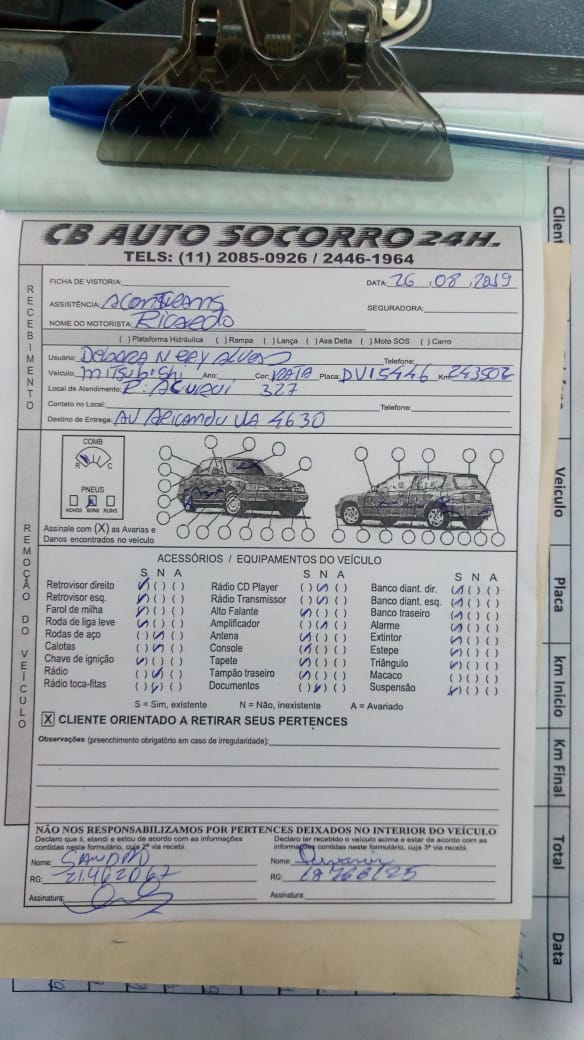 CB AUTO SOCORRO 24H.
TELS: (11) 2085-0926 / 2446-1964
RECEBIMENTO
FICHA DE VISTORIA: DATA: 26 . 08 . 2019
ASSISTÊNCIA: SEGURADORA:
NOME DO MOTORISTA: RICARDO
( ) Plataforma Hidráulica ( ) Rampa ( ) Lança ( ) Asa Delta ( ) Moto SOS ( ) Carro
Usuário: DEBORA NERY ALVES Telefone:
Veículo: MITSUBISHI Ano: Cor: PRATA Placa: DVI5446 Km: 243502
Local de Atendimento: R: ACURUI 327
Contato no Local: Telefone:
Destino de Entrega: AV ARICANDUVA 4630
REMOÇÃO DO VEÍCULO
COMB
R C
PNEUS
NOVOS BONS RUINS
Assinale com (X) as Avarias e
Danos encontrados no veículo
ACESSÓRIOS / EQUIPAMENTOS DO VEÍCULO
S N A S N A S N A
Retrovisor direito Rádio CD Player Banco diant. dir.
Retrovisor esq. Rádio Transmissor Banco diant. esq.
Farol de milha Alto Falante Banco traseiro
Roda de liga leve Amplificador Alarme
Rodas de aço Antena Extintor
Calotas Console Estepe
Chave de ignição Tapete Triângulo
Rádio Tampão traseiro Macaco
Rádio toca-fitas Documentos Suspensão
S = Sim, existente N = Não, inexistente A = Avariado
X CLIENTE ORIENTADO A RETIRAR SEUS PERTENCES
Observações (preenchimento obrigatório em caso de irregularidade):
NÃO NOS RESPONSABILIZAMOS POR PERTENCES DEIXADOS NO INTERIOR DO VEÍCULO
Declaro que li, etendi e estou de acordo com as informações
contidas neste formulário, cuja 2ª via recebi.
Nome: SANDRO
RG: 21.462067
Assinatura:
Declaro ter recebido o veículo acima e estar de acordo com as
informações contidas neste formulário, cuja 3ª via recebi.
Nome:
RG: 18768125
Assinatura:
Client
Veículo
Placa
km Inicio
Km Final
Total
Data